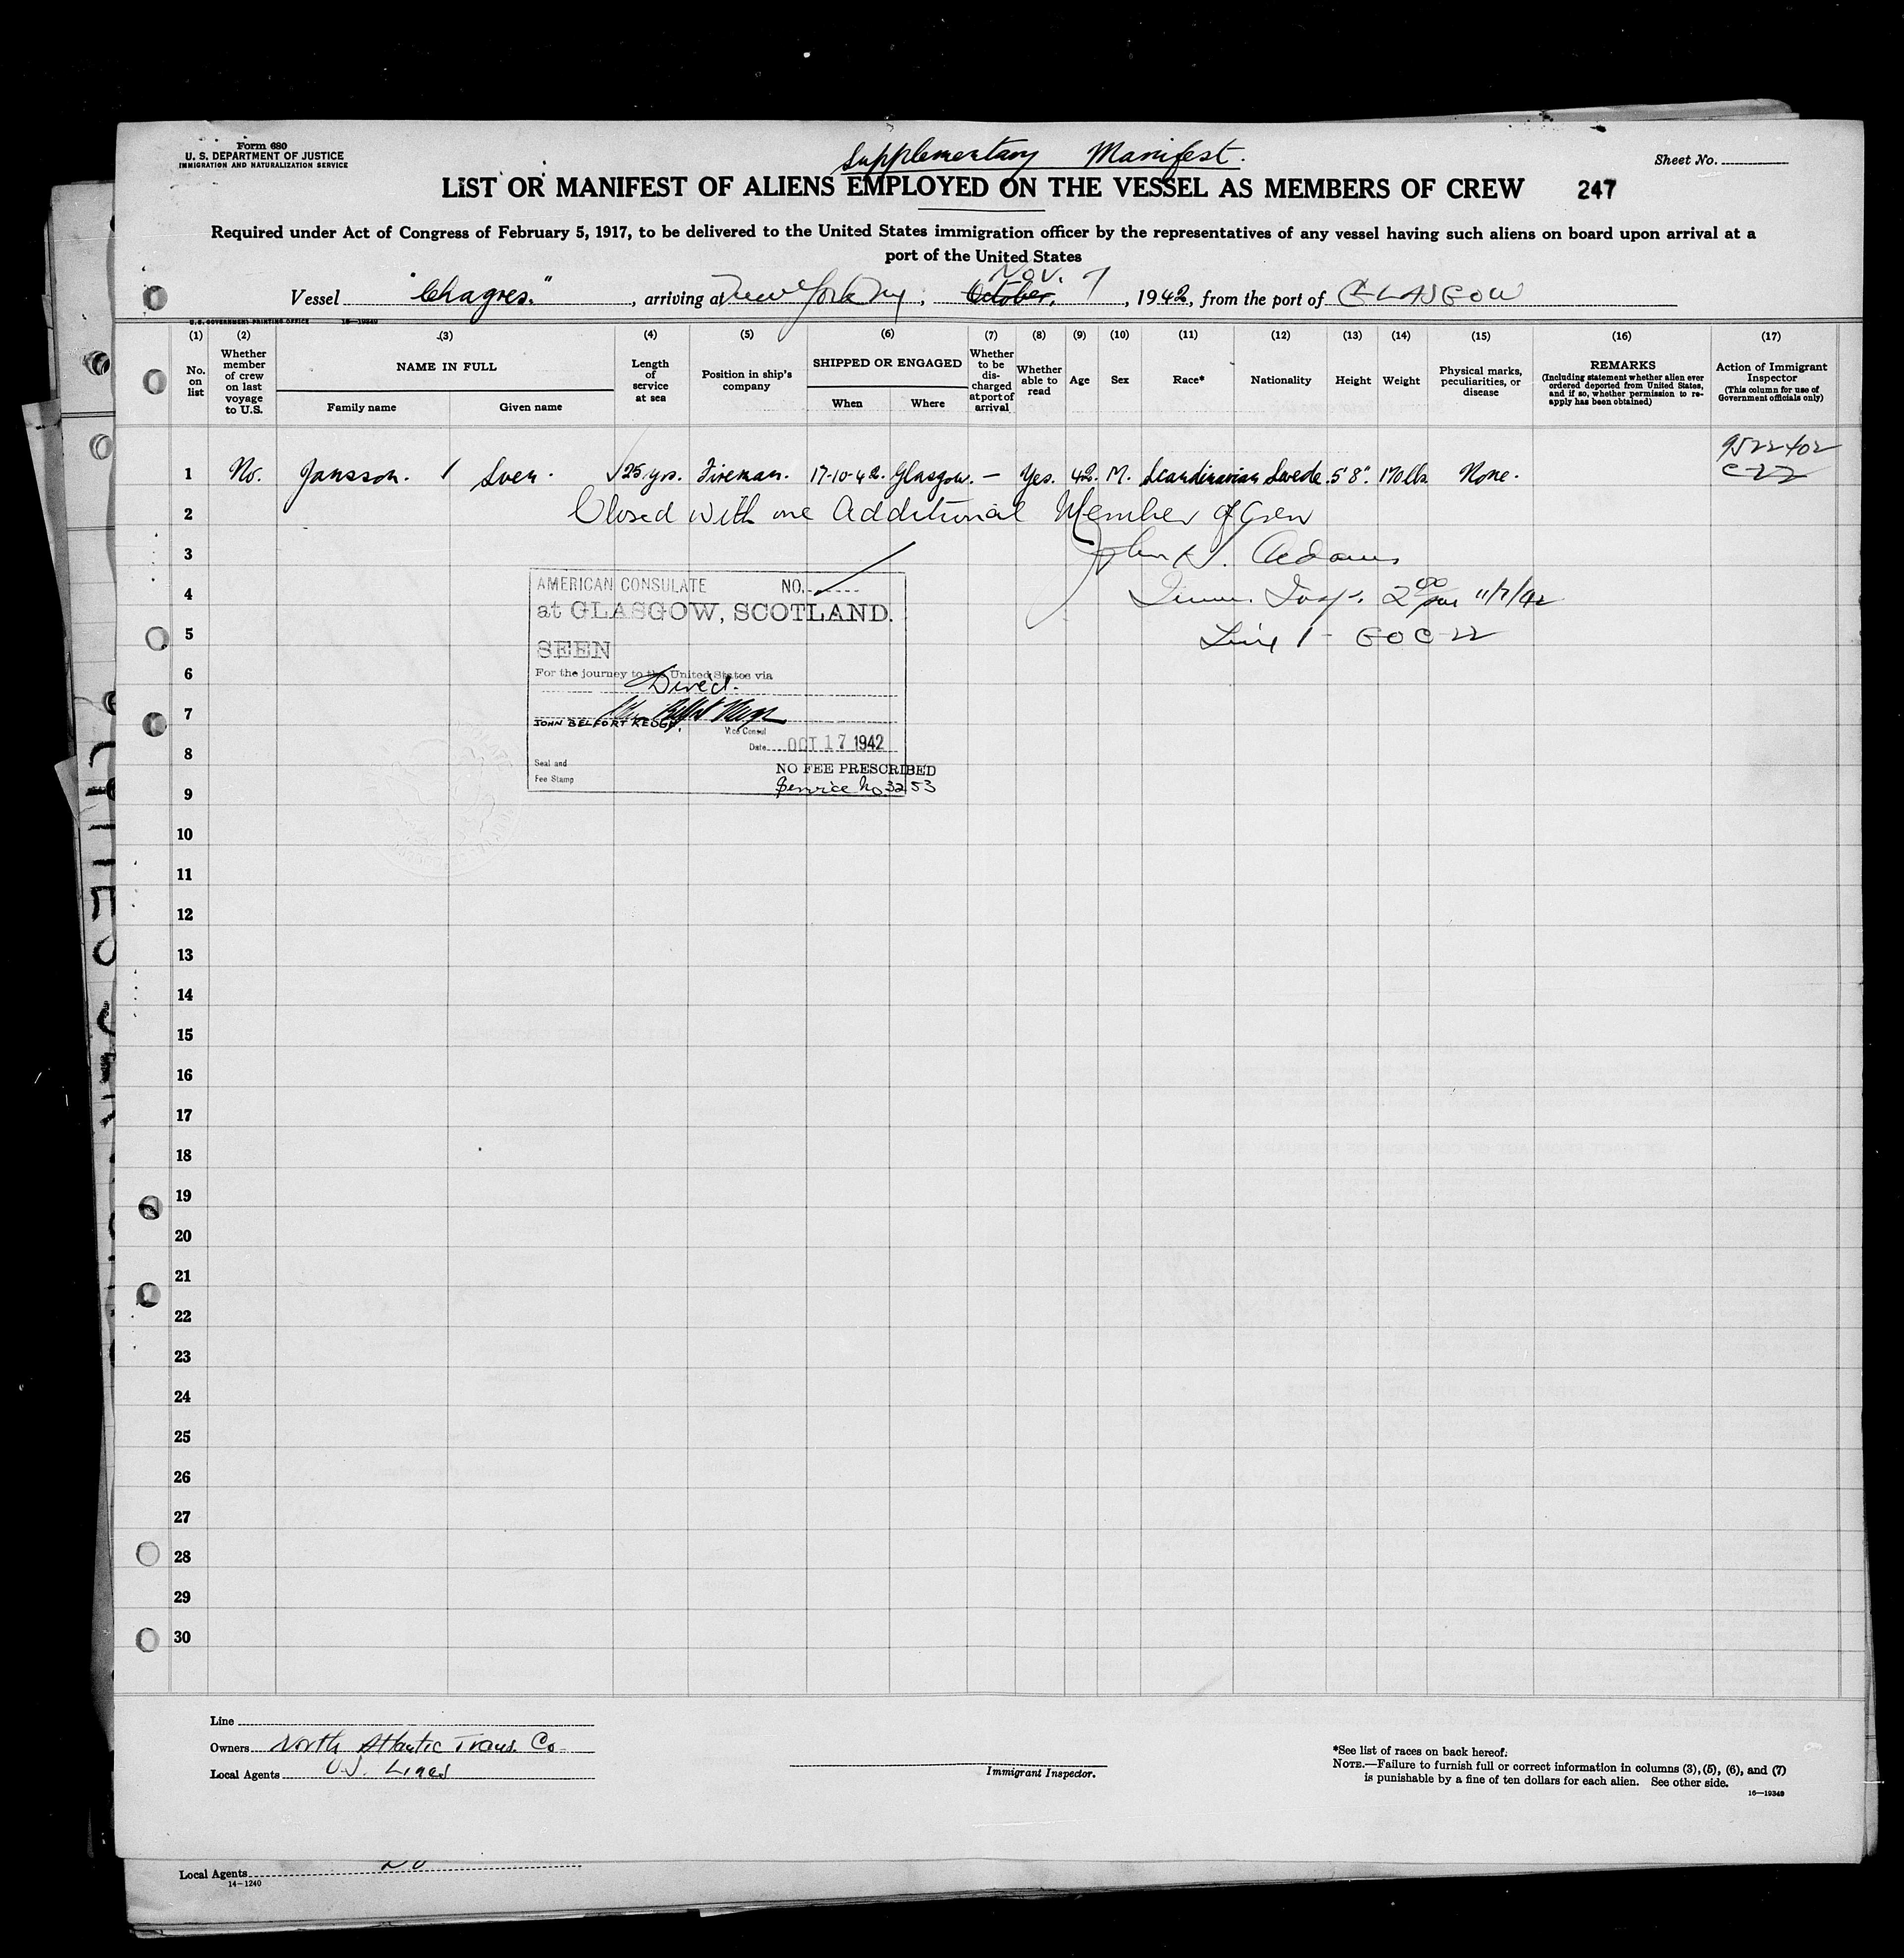 Form 680
U. S. DEPARTMENT OF JUSTICE
IMMIGRATION AND NATURALIZATION SERVICE
Supplementary Manifest.
Sheet No.
LIST OR MANIFEST OF ALIENS EMPLOYED ON THE VESSEL AS MEMBERS OF CREW 247
Required under Act of Congress of February 5, 1917, to be delivered to the United States immigration officer by the representatives of any vessel having such aliens on board upon arrival at a
port of the United States
Nov. 7
Vessel "Chagres." , arriving at New York Ny , October. , 1942, from the port of GLASGOW
U.S. GOVERNMENT PRINTING OFFICE 16—19349
(1) (2) (3) (4) (5) (6) (7) (8) (9) (10) (11) (12) (13) (14) (15) (16) (17)
No. on list
Whether member of crew on last voyage to U.S.
NAME IN FULL
Family name Given name
Length of service at sea
Position in ship's company
SHIPPED OR ENGAGED
When Where
Whether to be discharged at port of arrival
Whether able to read
Age
Sex
Race*
Nationality
Height
Weight
Physical marks, peculiarities, or disease
REMARKS
(Including statement whether alien ever ordered deported from United States, and if so, whether permission to reapply has been obtained)
Action of Immigrant Inspector
(This column for use of Government officials only)
9522402
1 No. Jansson. / Sven. √25 yrs. Fireman. 17-10-42. Glasgow. — Yes. 42. M. Scandinavian Swede. 5'8". 170 lbs None. C-22
2 Closed with one Additional Member of Crew
3 John Adams
4 Imm. Insp. 2 00 pm 11/7/42
5 Line 1 - GO C-22
AMERICAN CONSULATE NO.
at GLASGOW, SCOTLAND.
SEEN
For the journey to the United States via
Direct.
JOHN BELFORT KEOGH.
Vice Consul
Date OCT 17 1942
Seal and
Fee Stamp
NO FEE PRESCRIBED
Service No 3253
6
7
8
9
10
11
12
13
14
15
16
17
18
19
20
21
22
23
24
25
26
27
28
29
30
Line
Owners North Atlantic Trans. Co
Local Agents U.S. Lines
Immigrant Inspector.
*See list of races on back hereof.
NOTE.—Failure to furnish full or correct information in columns (3), (5), (6), and (7)
is punishable by a fine of ten dollars for each alien. See other side.
16—19349
Local Agents
14-1240